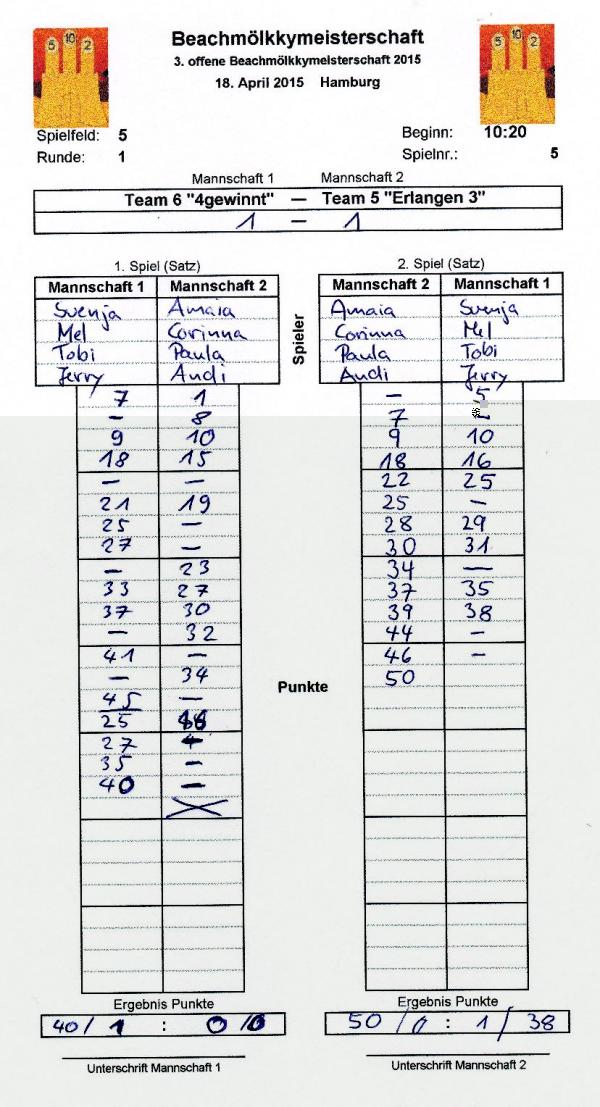 5 10 2
5 10 2
Beachmölkkymeisterschaft
3. offene Beachmölkkymeisterschaft 2015
18. April 2015 Hamburg
Spielfeld: 5 Beginn: 10:20
Runde: 1 Spielnr.: 5
Mannschaft 1 Mannschaft 2
Team 6 "4gewinnt" — Team 5 "Erlangen 3"
1 – 1
1. Spiel (Satz) 2. Spiel (Satz)
Mannschaft 1 Mannschaft 2 Mannschaft 2 Mannschaft 1
Svenja Amaia Amaia Svenja
Mel Corinna Corinna Mel
Tobi Paula Paula Tobi
Jerry Andi Andi Jerry
Spieler
7 1 – 5
– 8 7
9 10 9 10
18 15 18 16
– – 22 25
21 19 25 –
25 – 28 29
27 – 30 31
– 23 34 –
33 27 37 35
37 30 39 38
– 32 44 –
41 – 46 –
– 34 50
45 –
25
27
35 –
40 –
Punkte
Ergebnis Punkte Ergebnis Punkte
40 / 1 : 0 / 0 50 / 0 : 1 / 38
Unterschrift Mannschaft 1 Unterschrift Mannschaft 2